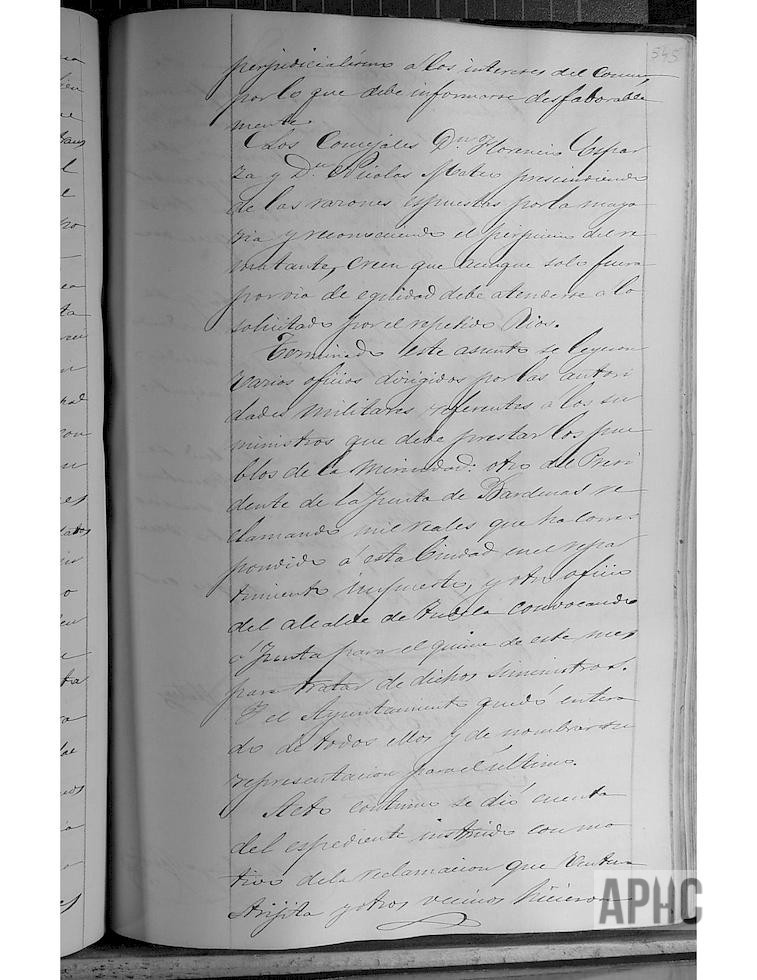 545
perjudicialisimo á los intereses del Comun,
por lo que debe informarse desfaborable
mente.
Los Concejales Dn Florencio Espar
za y Dn Nicolas Mateo prescindiendo
de las razones espuestas por la mayo
ria y reconociendo el perjuicio del re
matante, creen que aunque solo fuera
por via de equidad debe atenderse a lo
solicitado por el repetido Rios.
Terminado este asunto se leyeron
varios oficios dirigidos por las autori
dades militares referentes a los su
ministros que debe prestar los pue
blos de la Merindad: otro del Presi
dente de la Junta de Bardenas re
clamando mil reales que ha corres
pondido á esta Ciudad en el repar
timiento impuesto, y otro oficio
del alcalde de Tudela convocando
a Junta para el quince de este mes
para tratar de dichos suministros.
Y el Ayuntamiento quedó entera
do de todos ellos y de nombrar su
representacion para el último.
Acto continuo se dió cuenta
del espediente instruido con mo
tivo de la reclamacion que Ventura
Arijita y otros vecinos hicieron
APHC